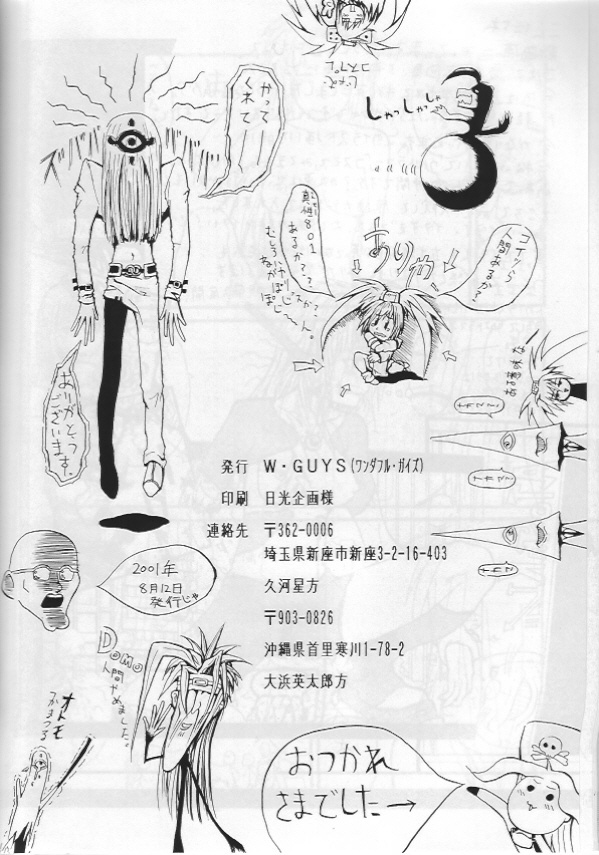 かって
くれて
ありがとう
ございます。
コスプレ
しゃっしゃしゃ
真性801
あるか??
ありゃ
コイツら
人間あるか?
発行 W・GUYS(ワンダフル・ガイズ)
印刷 日光企画様
連絡先 〒362-0006
埼玉県新座市新座3-2-16-403
久河星方
〒903-0826
沖縄県首里寒川1-78-2
大浜英太郎方
2001年
8月12日
発行じゃ
Domo
人間やめました。
オトモ
つかまつる
おつかれ
さまでした→